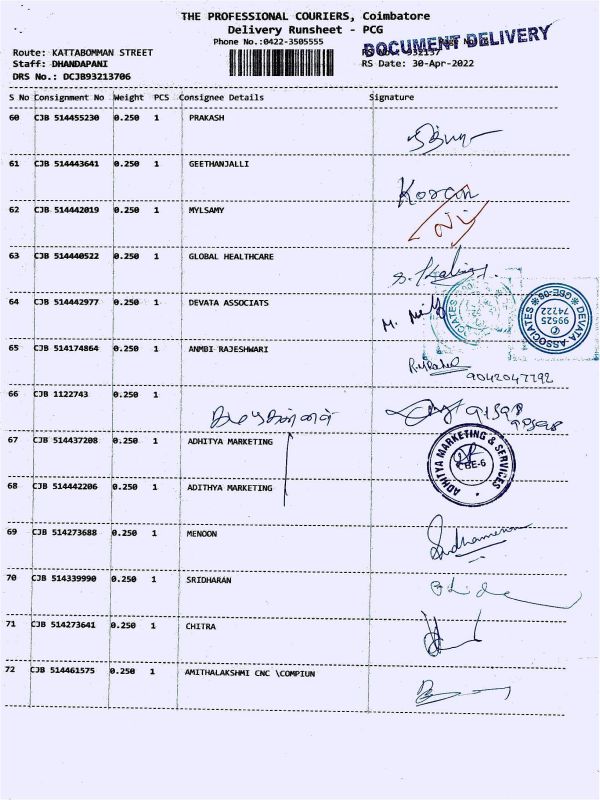 THE PROFESSIONAL COURIERS, Coimbatore
Delivery Runsheet - PCG
Phone No.:0422-3505555
DOCUMENT DELIVERY
Route: KATTABOMMAN STREET
Staff: DHANDAPANI
RS Date: 30-Apr-2022
DRS No.: DCJB93213706
S No Consignment No Weight PCS Consignee Details Signature
60 CJB 514455230 0.250 1 PRAKASH
61 CJB 514443641 0.250 1 GEETHANJALLI
62 CJB 514442019 0.250 1 MYLSAMY
63 CJB 514440522 0.250 1 GLOBAL HEALTHCARE
64 CJB 514442977 0.250 1 DEVATA ASSOCIATS
DEVATA-ASSOCIATES CBE-06
99525
74722
65 CJB 514174864 0.250 1 ANMBI RAJESHWARI
9042047792
66 CJB 1122743 0.250 1
67 CJB 514437208 0.250 1 ADHITYA MARKETING
ADHITYA MARKETING & SERVICES
CBE-6
68 CJB 514442206 0.250 1 ADITHYA MARKETING
69 CJB 514273688 0.250 1 MENOON
70 CJB 514339990 0.250 1 SRIDHARAN
71 CJB 514273641 0.250 1 CHITRA
72 CJB 514461575 0.250 1 AMITHALAKSHMI CNC \COMPIUN